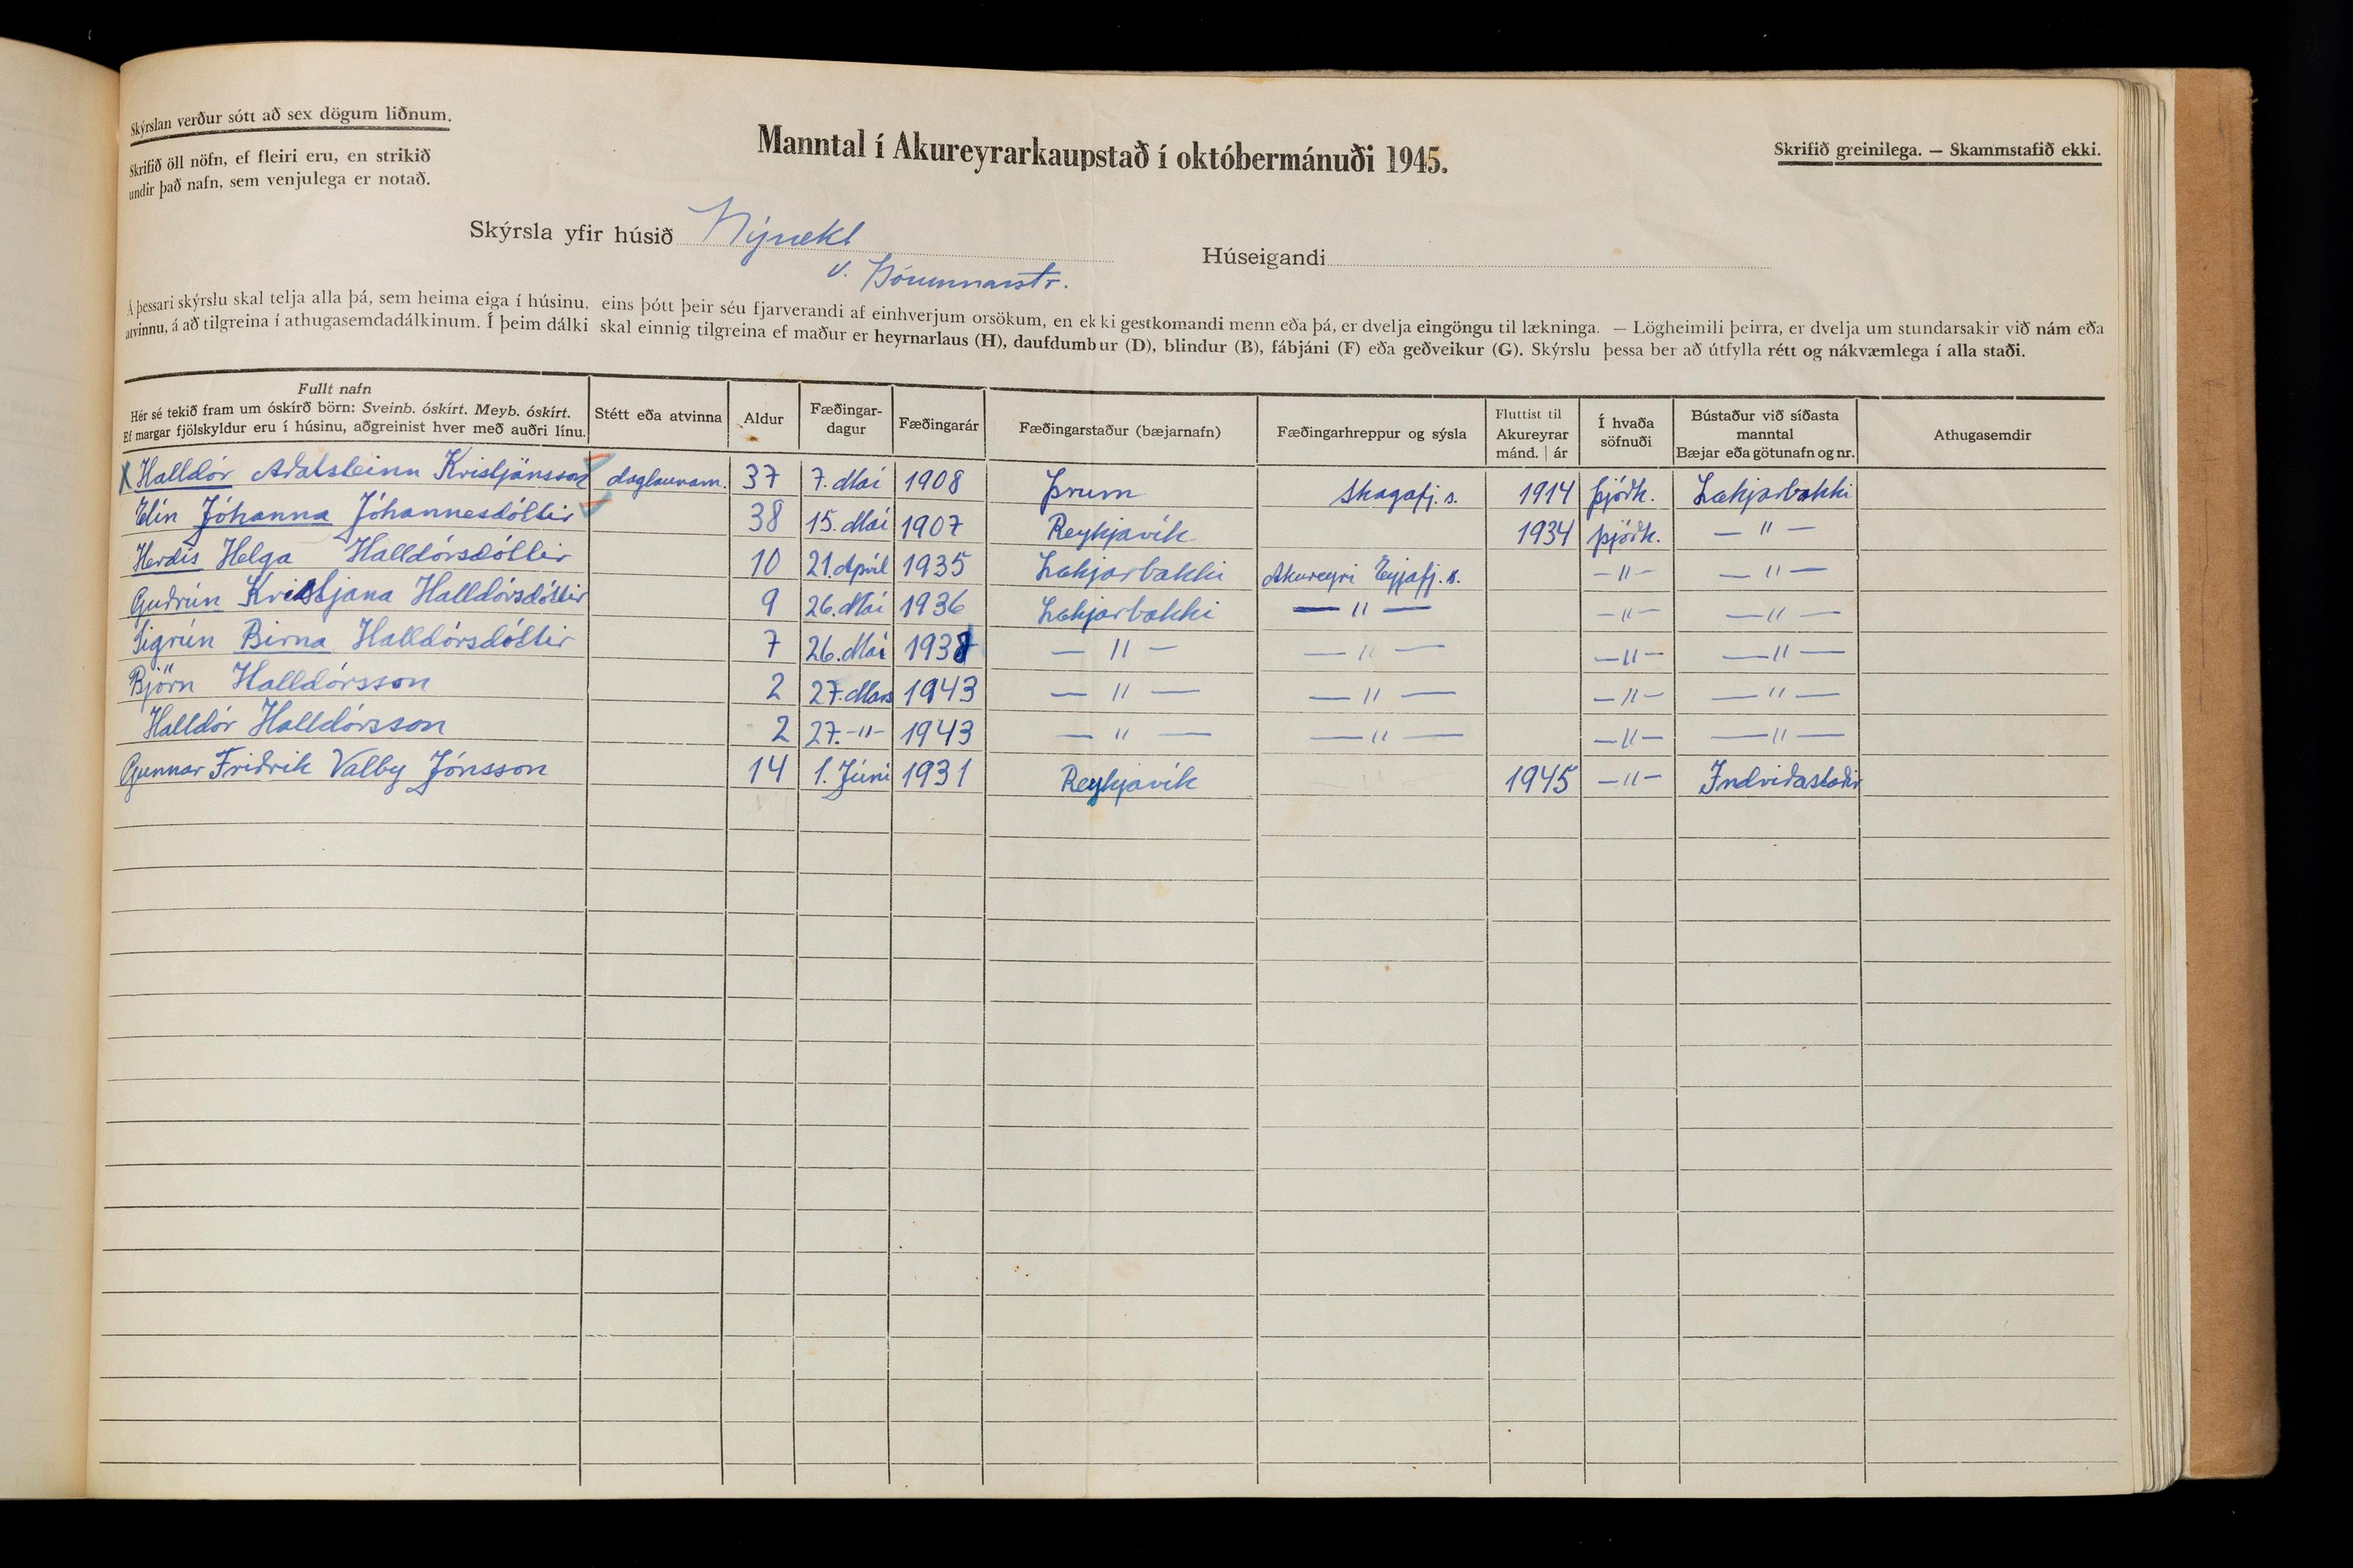 Skýrslan verður sótt að sex dögum liðnum.
Skrifið öll nöfn, ef fleiri eru, en strikið
undir það nafn, sem venjulega er notað.
Manntal í Akureyrarkaupstað í októbermánuði 1945.
Skrifið greinilega. — Skammstafið ekki.
Skýrsla yfir húsið Nýrækt
v. Þórunnarstr.
Húseigandi
Á þessari skýrslu skal telja alla þá, sem heima eiga í húsinu, eins þótt þeir séu fjarverandi af einhverjum orsökum, en ekki gestkomandi menn eða þá, er dvelja eingöngu til lækninga. — Lögheimili þeirra, er dvelja um stundarsakir við nám eða
atvinnu, á að tilgreina í athugasemdadálkinum. Í þeim dálki skal einnig tilgreina ef maður er heyrnarlaus (H), daufdumbur (D), blindur (B), fábjáni (F) eða geðveikur (G). Skýrslu þessa ber að útfylla rétt og nákvæmlega í alla staði.
Fullt nafn
Hér sé tekið fram um óskírð börn: Sveinb. óskírt. Meyb. óskírt.
Ef margar fjölskyldur eru í húsinu, aðgreinist hver með auðri línu.
Stétt eða atvinna
Aldur
Fæðingar-
dagur
Fæðingarár
Fæðingarstaður (bæjarnafn)
Fæðingarhreppur og sýsla
Fluttist til
Akureyrar
mánd. | ár
Í hvaða
söfnuði
Bústaður við síðasta
manntal
Bæjar eða götunafn og nr.
Athugasemdir
X Halldór Aðalsteinn Kristjánsson daglaunam. 37 7. Maí 1908 Þrum Skagafj.s. 1914 þjóðk. Lækjarbakki
Elín Jóhanna Jóhannesdóttir 38 15. Maí 1907 Reykjavík 1934 þjóðk. — " —
Herdís Helga Halldórsdóttir 10 21. Apríl 1935 Lækjarbakki Akureyri Eyjafj.s. — " — — " —
Guðrún Kristjana Halldórsdóttir 9 26. Maí 1936 Lækjarbakki — " — — " — — " —
Sigrún Birna Halldórsdóttir 7 26. Maí 1938 — " — — " — — " — — " —
Björn Halldórsson 2 27. Mars 1943 — " — — " — — " — — " —
Halldór Halldórsson 2 27. - " - 1943 — " — — " — — " — — " —
Gunnar Friðrik Valby Jónsson 14 1. Júní 1931 Reykjavík 1945 — " — Indriðastaðir